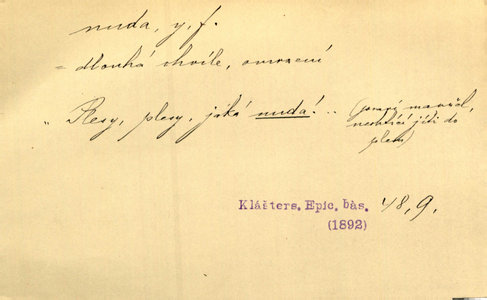 nuda, y, f.
= dlouhá chvíle, omrzení
"Resy, plesy, jaká nuda! .. (
nechtící jíti do
plesu)
Klášters. Epic. bás. 48, 9.
(1892)